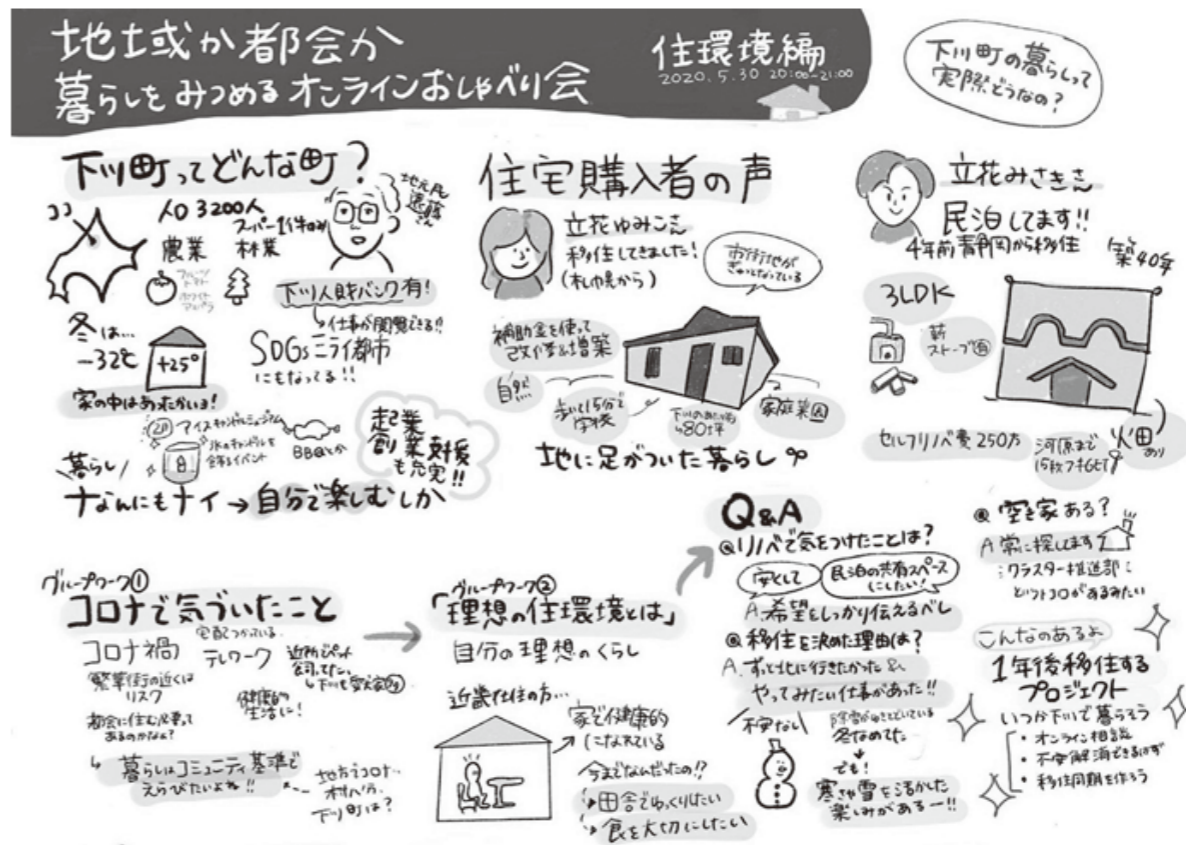 地域か都会か
暮らしをみつめるオンラインおしゃべり会
住環境編
2020.5.30 20:00-21:00
下川町の暮らしって
実際どうなの?
下川町ってどんな町?
ココ
人口3200人
スーパー1件のみ
農業
林業
フルーツ
トマト
ホワイト
アスパラ
地元民
遠藤さん
下川人財バンク有!
仕事が閲覧できる!!
冬は…
-32℃
+25°
家の中はあったかいよ!
SDGsミライ都市
にもなってる!!
2月
アイスキャンドルミュージアム
氷のキャンドルを
BBQとか
起業
創業支援
も充実!!
暮らし
ナなんにもナイ→自分で楽しむしか
住宅購入者の声
立花ゆみこさん
移住してきました!
(札幌から)
市街地が
ぎゅっとなっている
補助金を使って
改修&増築
歩いて15分で
学校
80坪
家庭菜園
地に足がついた暮らし
立花みさきさん
民泊してます!!
4年前静岡から移住
築40年
3LDK
薪
ストーブ有
セルフリノベ費250万
河原まで
畑
あり
グループワーク①
コロナで気づいたこと
コロナ禍
テレワーク
繁華街の近くは
リスク
健康的
生活に!
都会に住む必要って
あるのかなぁ?
暮らしはコミュニティ基準で
えらびたいよね!!
地方でコロナ…
村八分…
下川町は?
グループワーク②
「理想の住環境とは」
自分の理想のくらし
近畿在住の方…
家で健康的
になれている
今までなんだったの!?
田舎でゆっくりしたい
食を大切にしたい
Q&A
Q リノベで気をつけたことは?
安くして
民泊の共有スペース
にしたい!
A.希望をしっかり伝えるべし
Q 移住を決めた理由は?
A.ずっと北に行きたかった&
やってみたい仕事があった!!
不安なし
除雪がゆきとどいている
冬なめてた
でも!
寒さや雪を活かした
楽しみがあるー!!
Q 空き家ある?
A 常に探してます
クラスター推進部
というトコロがあるみたい
こんなのあるよ
1年後移住する
プロジェクト
いつか下川で暮らそう
・オンライン相談
・不安解消できるはず
・移住同期を作ろう